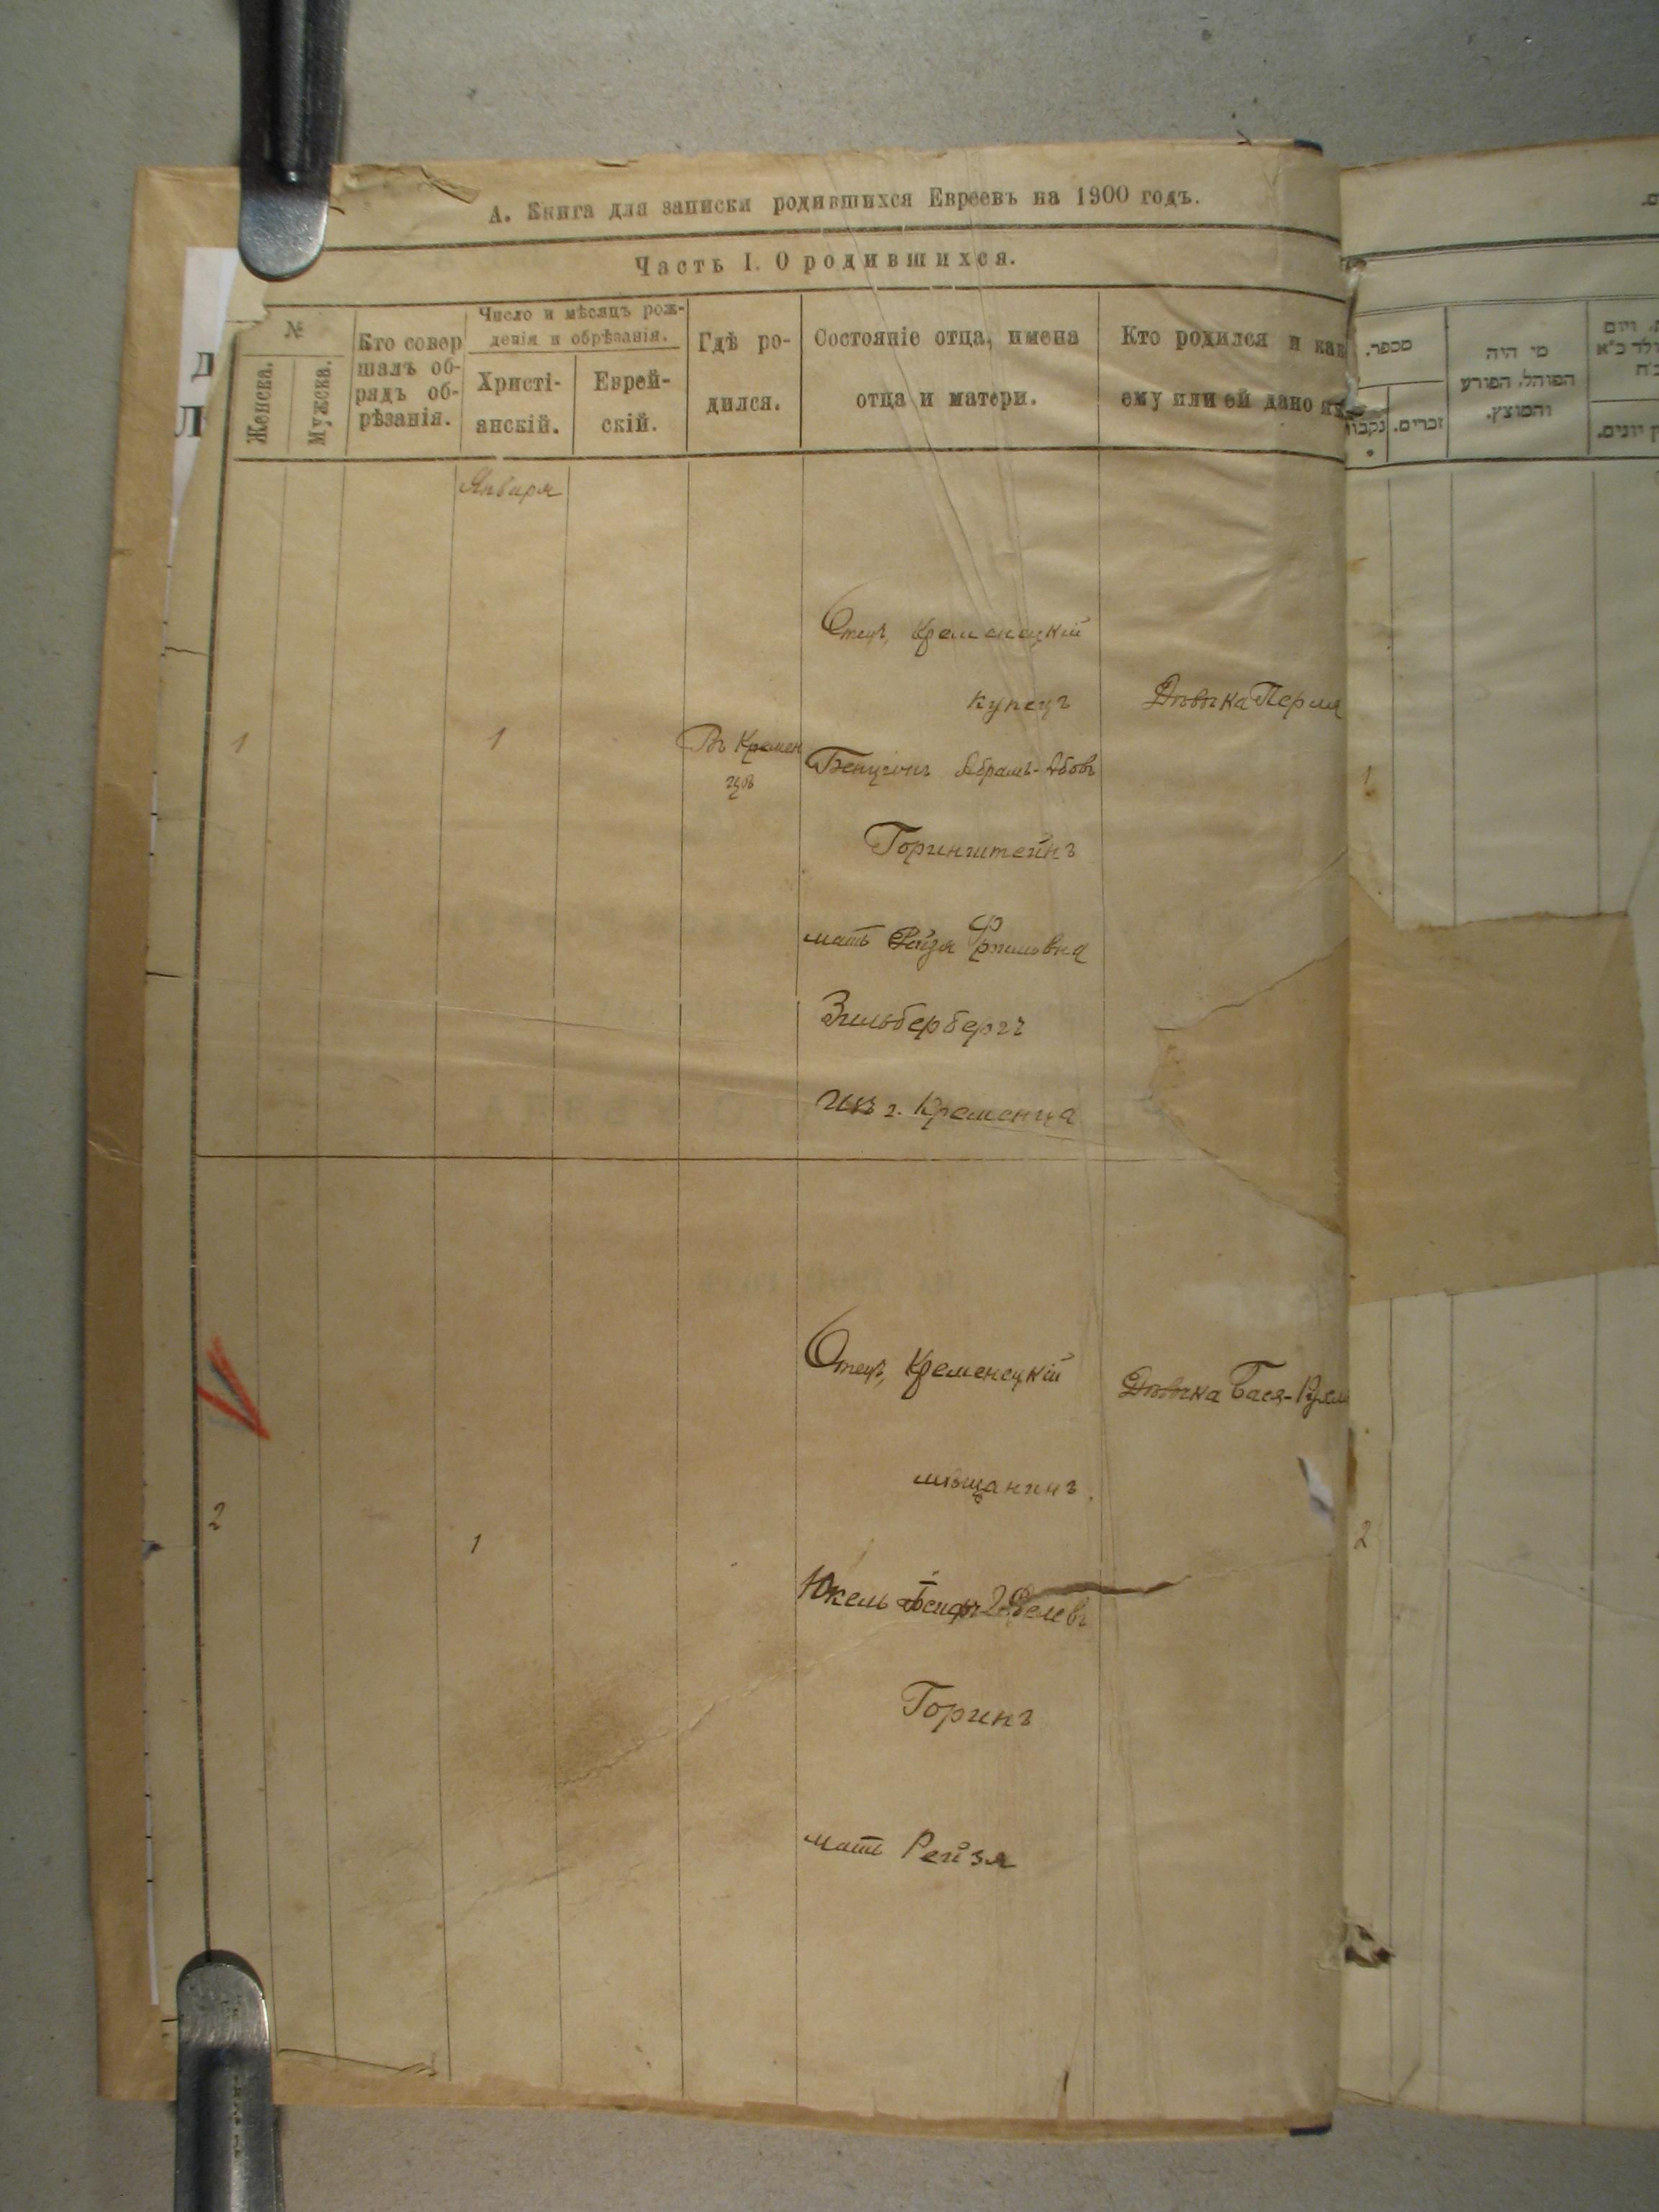 А. Книга для записки родившихся Евреевъ на 1900 годъ.
Часть I. О родившихся.
№
Женска.
Мужска.
Кто совер
шалъ об-
рядъ об-
рѣзанія.
Число и мѣсяцъ рож-
денія и обрѣзанія.
Христі-
анскій.
Еврей-
скій.
Гдѣ ро-
дился.
Состояніе отца, имена
отца и матери.
Кто родился и как
ему или ей дано
Января
1
1
Въ Кремен
цѣ
Отецъ, Кременецкій
купецъ
Бенціонъ Абрамъ-Абовъ
Горинштейнъ
мать Рейзя
Зильбербергъ
изъ г. Кременца
Дѣвочка Перля
2
1
Отецъ, Кременецкій
мѣщанинъ.
Юкель
Горинъ
мать Рейзя
Дѣвочка Бася-
מספר.
נקבות
זכרים.
מי היה
המוהל, הפורע
והמוצץ.
1
2